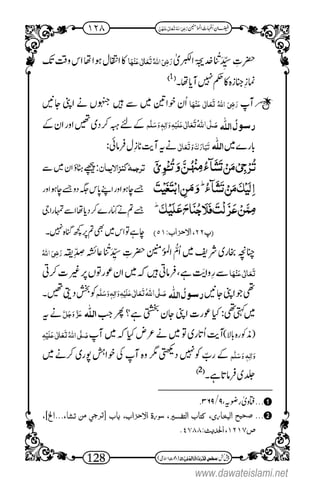 فیضانِ اُمَّہاتُ الْمُؤْمِنِیْن رَضِیَ اللہُ تَعَالٰی عَنْہُنَّ
۱۲۸
حضرتِ سَیِّدَتُنا خدیجۃ الکبریٰ رَضِیَ اللہُ تَعَالٰی عَنْہَا کا انتقال ہوا تھا اس وقت تک
نمازِ جنازہ کا حکم نہیں آیا تھا۔ (1)
آپ رَضِیَ اللہُ تَعَالٰی عَنْہَا اُن خواتین میں سے ہیں جنہوں نے اپنی جانیں
رسولُ اللہ صَلَّی اللہُ تَعَالٰی عَلَیْہِ وَاٰلِہٖ وَسَلَّم کے لئے ہبہ کر دی تھیں اور ان کے
بارے میں اللہ تَبَارَکَ وَتَعَالٰی نے یہ آیت نازل فرمائی:
تُرْجِیْ مَنْ تَشَآءُ مِنْهُنَّ وَ تُــٴْـوِیْۤ
اِلَیْكَ مَنْ تَشَآءُؕ-وَ مَنِ ابْتَغَیْتَ
مِمَّنْ عَزَلْتَ فَلَا جُنَاحَ عَلَیْكَؕ-
(پ۲۲، الاحزاب: ۵۱)
ترجمۂ کنزالایمان: پیچھے ہٹاؤ ان میں سے
جسے چاہو اور اپنے پاس جگہ دو جسے چاہو اور
جسے تم نے کنارے کر دیا تھا اسے تمہارا جی
چاہے تو اس میں بھی تم پر کچھ گناہ نہیں۔
چنانچہ بخاری شریف میں اُمُّ المؤمنین حضرتِ سَیِّدَتُنا عائشہ صدّیقہ رَضِیَ اللہُ
تَعَالٰی عَنْہَا سے روایت ہے، فرماتی ہیں کہ میں ان عورتوں پر غیرت کرتی
تھی جو اپنی جانیں رسولُ اللہ صَلَّی اللہُ تَعَالٰی عَلَیْہِ وَاٰلِہٖ وَسَلَّم کو بخش دیتی تھیں۔
میں کہتی تھی: کیا عورت اپنی جان بخشتی ہے؟ پھر جب اللہ عَزَّوَجَلَّ نے یہ
(مذکورہ بالا) آیت اُتاری تو میں نے عرض کی کہ میں آپ صَلَّی اللہُ تَعَالٰی عَلَیْہِ
وَاٰلِہٖ وَسَلَّم کے ربّ کو نہیں دیکھتی مگر وہ آپ کی خواہش پوری کرنے میں
جلدی فرماتا ہے۔ (2)
1... فتاویٰ رضویہ، ۹/۳۶۹.
2... صحیح البخاری، کتاب التفسیر، سورة الاحزاب، باب [ترجي من تشاء...الخ]،
ص۱۲۱۷، الحدیث: ٤٧٨٨.
128
www.dawateislami.net